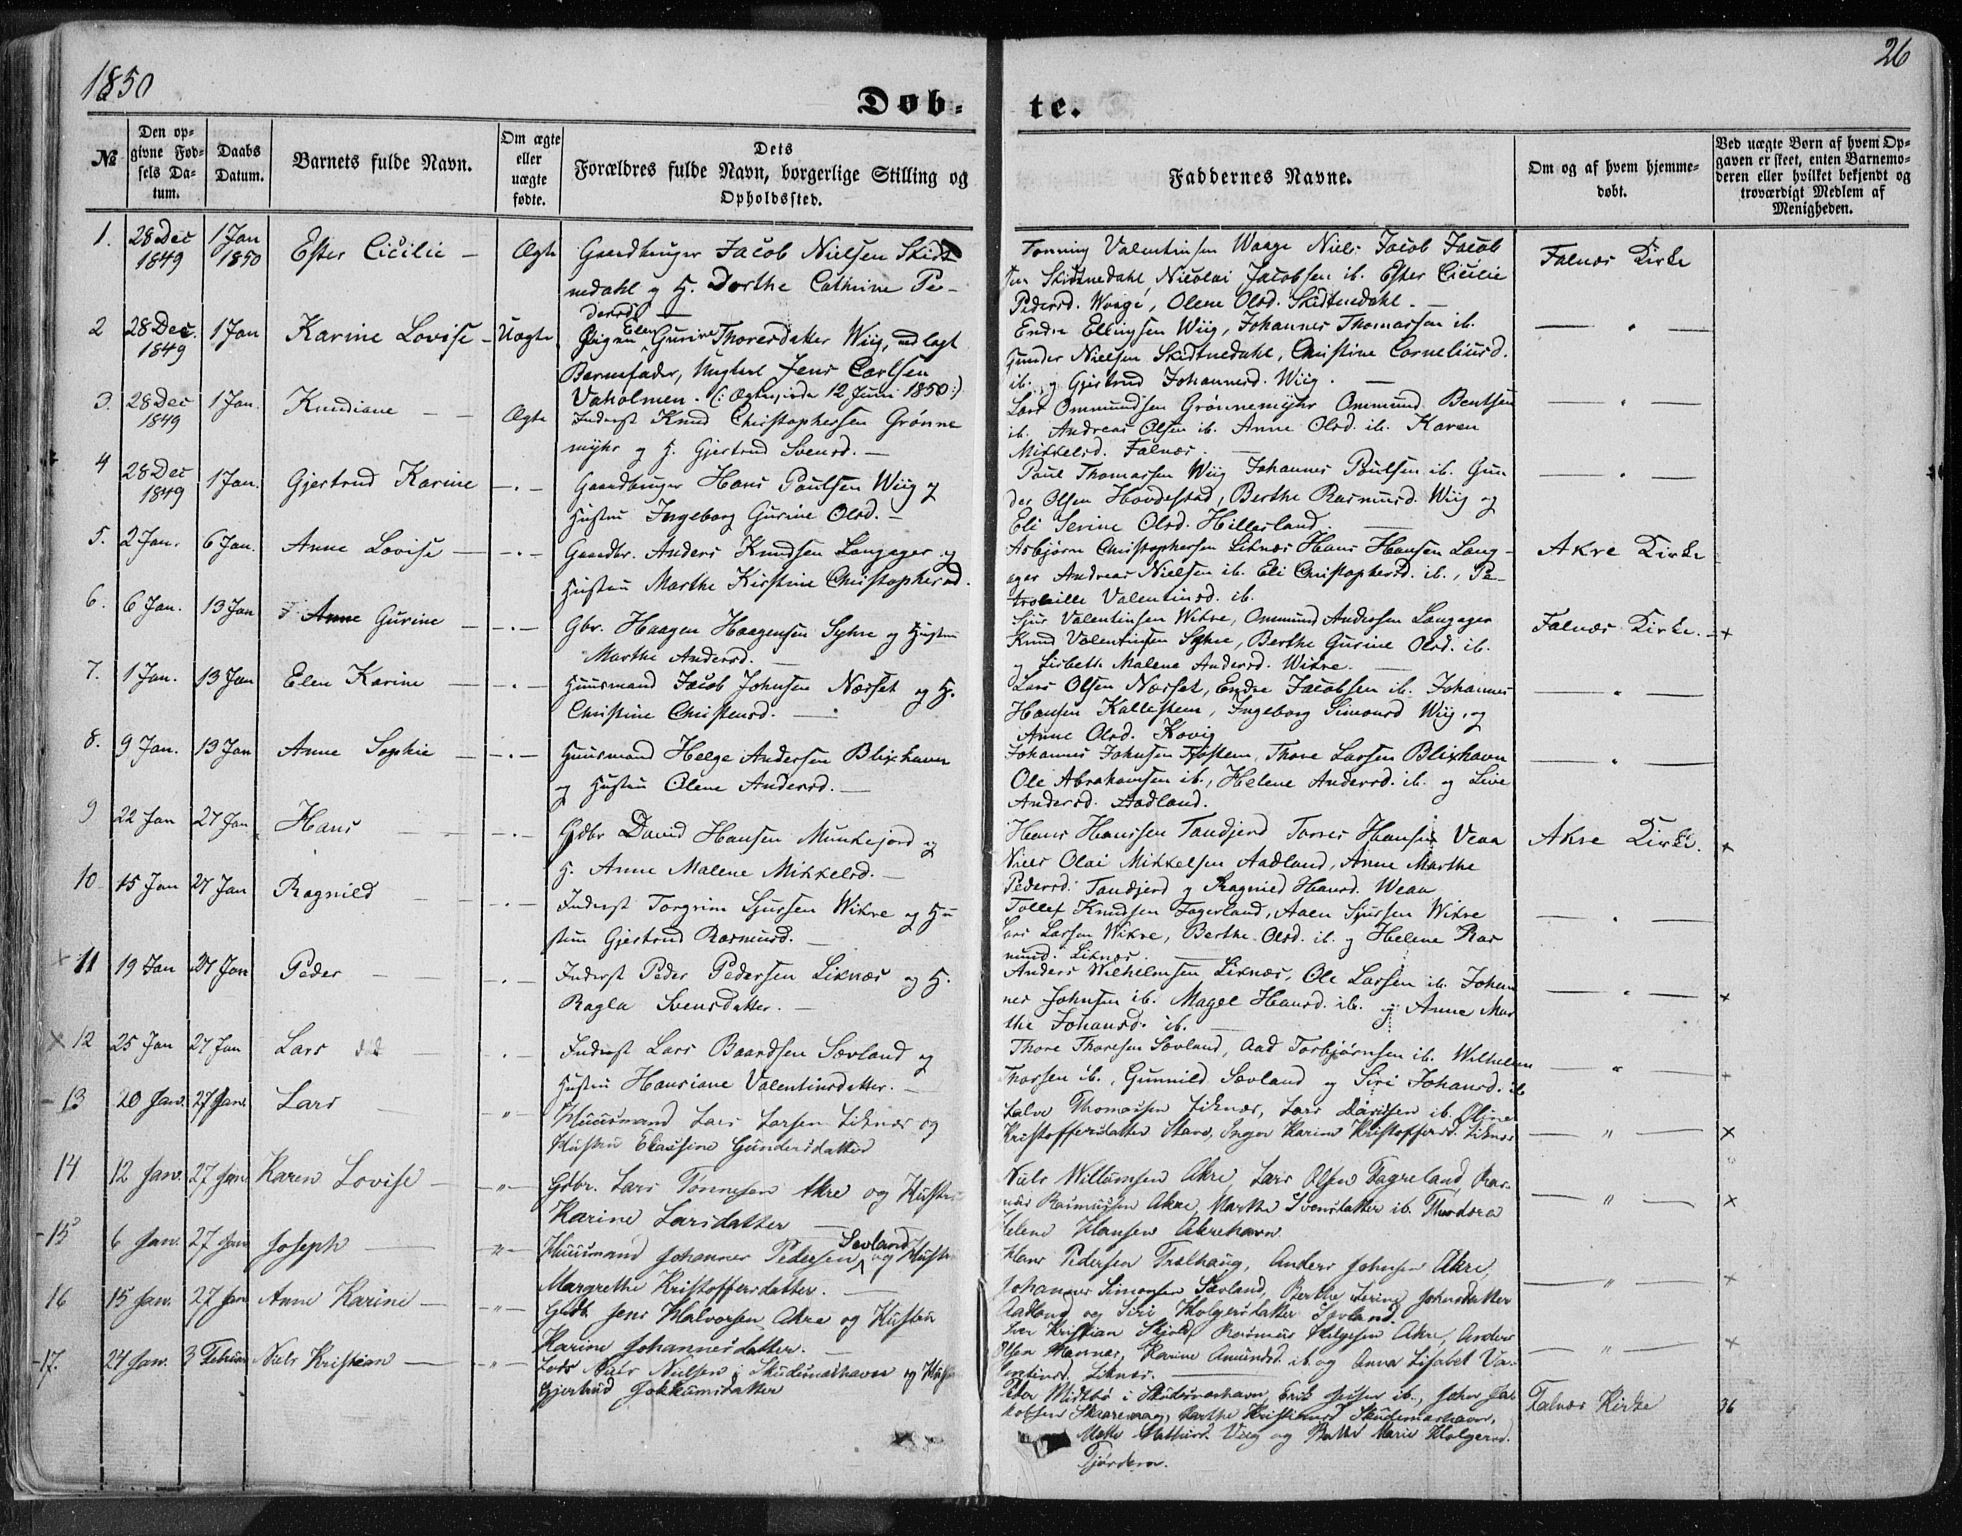 1850
26
Døb-
te.
№
Den op-
givne Fød-
sels Da-
tum.
Daabs
Datum.
Barnets fulde Navn.
Om ægte
eller
uægte
fødte.
Dets
Forældres fulde Navn, borgerlige Stilling og
Opholdssted.
Faddernes Navne.
Om og af hvem hjemme-
døbt.
Ved uægte Børn af hvem Op-
gaven er skeet, enten Barnemo-
deren eller hvilket bekjendt og
troværdigt Medlem af
Menigheden.
1. 28 Dec 1849 1 Jan 1850 Ester Cicilie – Ægte
Gaardbruger Jacob Nielsen Skidt
nedahl og H. Dorthe Cathrine Pe-
dersd. –
Tønning Valentinsen Waage Niels Jacob Jacob
sen Skidtnedahl, Nicolai Jacobsen ib. Ester Cicilie
Pedersd. Waage, Olene Olsd. Skidtnedahl. –
Falnæs Kirke
2 28 Dec. 1849 1 Jan Karine Lovise – Uægte
Pigen Elen Gurine Thoresdatter Wiig, udlagt
Barnefader, Ungkarl Jens Carlsen
Vaholmen. (: Ægtev: 12 Juni 1850:)
Endre Ellingsen Wiig, Johannes Thomassen ib.
Gunder Nielsen Skidtnedahl, Christine Corneliusd.
ib. og Gjertrud Johannesd. Wiig. –
— " —
3. 28 Dec 1849 1 Jan. Knudiane – – Ægte
Inderst Knud Christophersen Grønne
myhr og H. Gjertrud Svensd. –
Lars Ommundsen Grønnemyhr Ommund Bentsen
ib. Andreas Olsen ib. Anne Olsd. ib. Karen
Mikkelsd. Falnæs. –
— " —
4 28 Dec 1849 1 Jan. Gjertrud Karine – " –
Gaardbruger Hans Poulsen Wiig og
Hustru Ingeborg Gurine Olsd. –
Poul Thomassen Wiig Johannes Poulsen ib. Gun
der Olsen Hovdestad, Berthe Rasmusd. Wiig og
Eli Serine Olsd. Hillesland. –
— " —
5. 2 Jan. 6 Jan. Anne Lovise – – " –
Gaardbr. Anders Knudsen Langager og
Hustru Marthe Kirstine Christophersd.
Asbjørn Christophersen Liknæs Hans Hansen Lang-
ager Andreas Nielsen ib. Eli Christophersd. ib., Pe-
tronille Valentinsd. ib.
Akre Kirke
6. 6 Jan. 13 Jan Anne Gurine – – " –
Gbr. Haagen Haagensen Syhre og Hustru
Marthe Andersd. –
Sjur Valentinsen Wikre, Ommund Andersen Langager
Knud Valentinsen Syhre, Berthe Gurine Olsd. ib.
og Lisbeth Malene Andersd. Wikre. –
Falnæs Kirke. – x
7. 1 Jan. 13 Jan Elen Karine – – " –
Huusmand Jacob Johnsen Norset og H.
Christine Christensd. –
Lars Olsen Norset, Endre Jacobsen ib. Johannes
Hansen Kallestem, Ingeborg Simonsd Wiig, og
Anne Olsd. Kovig
— " —
8. 9 Jan. 13 Jan Anne Sophie – – " –
Huusmand Helge Andersen Blixhavn
og Hustru Olene Andersd. –
Johannes Johnsen, Thore Larsen Blixhavn
Ole Abrahamsen ib., Helene Andersd. ib. og Live
Andersd. Aadland.
— " —
9 22 Jan 27 Jan Hans – – " –
Gdbr David Hansen Munkejord og
H. Anne Malene Mikkelsd. –
Hans Hanssen Tandjerd Torres Hansen Veaa
Niels Olai Mikkelsen Aadland, Anne Marthe
Pedersd. Tandjerd og Ragnild Hansd. Weaa
Akre Kirke. x
10 15 Jan 27 Jan Ragnild – – " –
Inderst Torgrim Sjursen Wikre og Hu
stru Gjertrud Rasmusd. –
Tollef Knudsen Fagerland, Aaen Sjursen Wikre
Lars Larsen Wikre, Berthe Olsd. ib. og Helene Ras
musd. Liknæs. –
— " —
x 11 19 Jan 27 Jan Peder – – " –
Inderst Peder Pedersen Liknæs og H.
Ragla Svensdatter. –
Anders Wilhelmsen Liknæs, Ole Larsen ib. Johan
nes Johnsen ib. Magel Hansd. ib. og Anne Mar
the Johansd. ib. –
— " — x
x 12 25 Jan 27 Jan Lars død – "
Inderst Lars Baardsen Sævland og
Hustru Hansiane Valentinsdatter. –
Thore Thoresen Sævland, Aad Torbjørnsen ib. Wilhelm
Thorsen ib., Gunnild Sævland og Siri Johansd. ib
— " — x
– 13 20 Jan. 27 Jan. Lars – "
Huusmand Lars Larsen Liknæs og
Hustru Elassine Gundersdatter
Salve Thomassen Liknæs, Lars Davidsen ib. Oline
Kristoffersdatter Stave, Inger Karine Kristoffersd. Liknæs
— " — x
14 12 Jan. 27 Jan. Karen Lovise – – " –
Gdbr. Lars Tønnesen Akre og Hustru
Karine Larsdatter –
Niels Willumsen Akre, Lars Olsen Fagreland, Ras-
mus Rasmussen Akre, Marthe Svensdatter ib. Theodora
Helene Hansen Akrehavn.
— " — x
– 15 6 Jan. 27 Jan Joseph – " –
Huusmand Johannes Pedersen Sevland og Hustru
Margrethe Kristoffersdatter. –
Hans Pedersen Trælhaug, Anders Johnsen Akre,
Johannes Simonsen Sævland, Berthe Serine Johnsdatter
Aadland og Siri Holgersdatter Sævland.
— " — x
16 15 Jan. 27 Jan Anne Karine – " –
Gdb. Jens Halvorsen Akre og Hustru
Karine Johannesdatter. –
Iver Kristian Skjold, Rasmus Helgesen Akre, Anders
Olsen Mannes, Karine Amundsd. ib. og Anna Lisabet Va-
lentinsd. Liknæs. –
— " — x
– 17. 24 Jan. 3 Februar Niels Kristian – " –
Lods Niels Nielsen i Skudesnæshavn og Hustru
Gjertrud Jokkumsdatter
Peter Midtbø i Skudesnæshavn, Erik Jensen ib., Jakob Ja-
kobsen Skaarevaag, Marthe Kristiansd Skudesnæshavn,
Mette Wiig og Marie Holgersd.
Fjørdem.
Falnæs Kirke 36